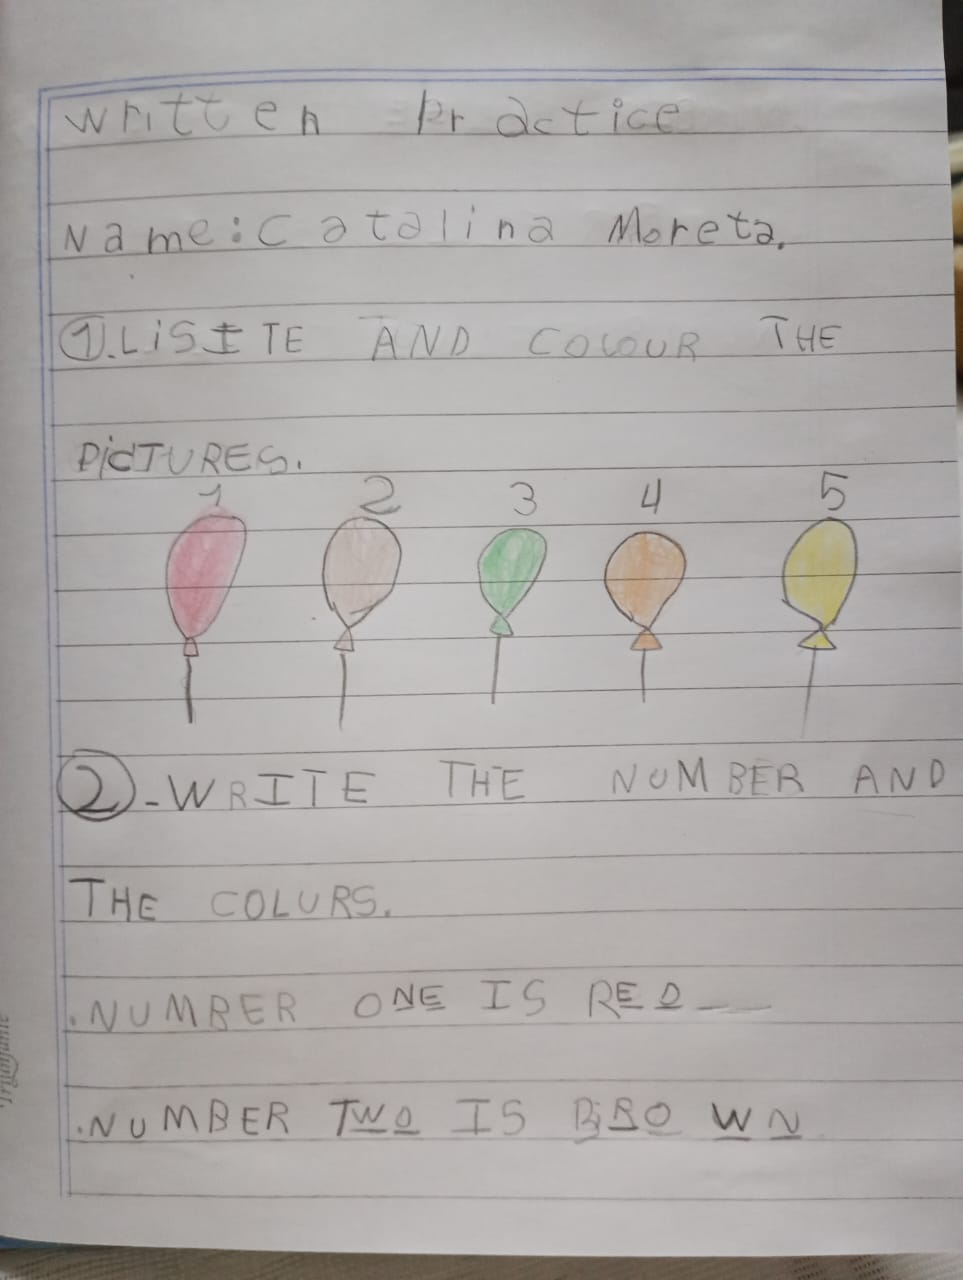 written Practice
Name: Catalina Moreta.
1. LISITE AND COLOUR THE
PICTURES.
1 2 3 4 5
2 - WRITE THE NUMBER AND
THE COLURS.
. NUMBER ONE IS RED
. NUMBER TWO IS BROWN